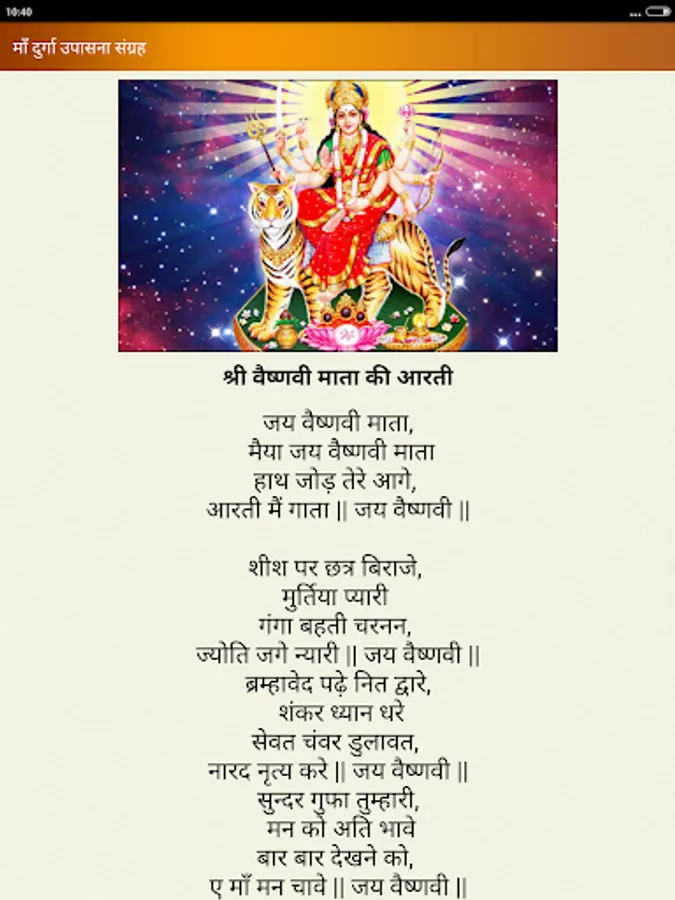 10:40
माँ दुर्गा उपासना संग्रह
श्री वैष्णवी माता की आरती
जय वैष्णवी माता,
मैया जय वैष्णवी माता
हाथ जोड़ तेरे आगे,
आरती मैं गाता || जय वैष्णवी ||
शीश पर छत्र बिराजे,
मुर्तिया प्यारी
गंगा बहती चरनन,
ज्योति जगे न्यारी || जय वैष्णवी ||
ब्रम्हावेद पढ़े नित द्वारे,
शंकर ध्यान धरे
सेवत चंवर डुलावत,
नारद नृत्य करे || जय वैष्णवी ||
सुन्दर गुफा तुम्हारी,
मन को अति भावे
बार बार देखने को,
ए माँ मन चावे || जय वैष्णवी ||